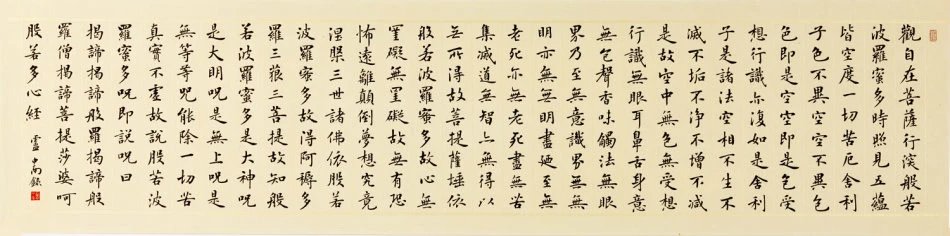 觀自在菩薩行深般若
波羅蜜多時照見五蘊
皆空度一切苦厄舍利
子色不異空空不異色
色即是空空即是色受
想行識亦復如是舍利
子是諸法空相不生不
滅不垢不淨不增不減
是故空中無色無受想
行識無眼耳鼻舌身意
無色聲香味觸法無眼
界乃至無意識界無無
明亦無無明盡乃至無
老死亦無老死盡無苦
集滅道無智亦無得以
无所得故菩提薩埵依
般若波羅蜜多故心無
罣礙無罣礙故無有恐
怖遠離顛倒夢想究竟
涅槃三世諸佛依般若
波羅蜜多故得阿耨多
羅三藐三菩提故知般
若波羅蜜多是大神呪
是大明呪是無上呪是
無等等咒能除一切苦
真實不虛故說般若波
羅蜜多呪即說呪曰
揭諦揭諦般羅揭諦般
羅僧揭諦菩提莎婆呵
般若多心經